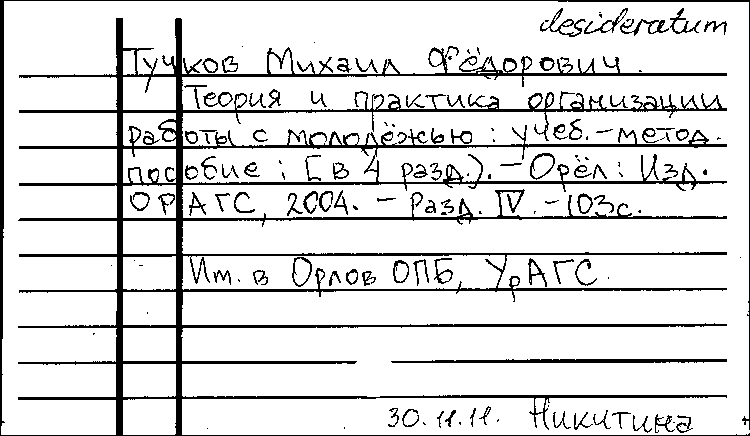 desideratum
Тучков Михаил Фёдорович.
Теория и практика организации
работы с молодёжью : учеб.-метод.
пособие : [в 4 разд.). - Орёл : Изд.
ОРАГС, 2004. - Разд. IV. - 103с.
Им. в Орлов ОПБ, УрАГС.
30.11.11. Никитина